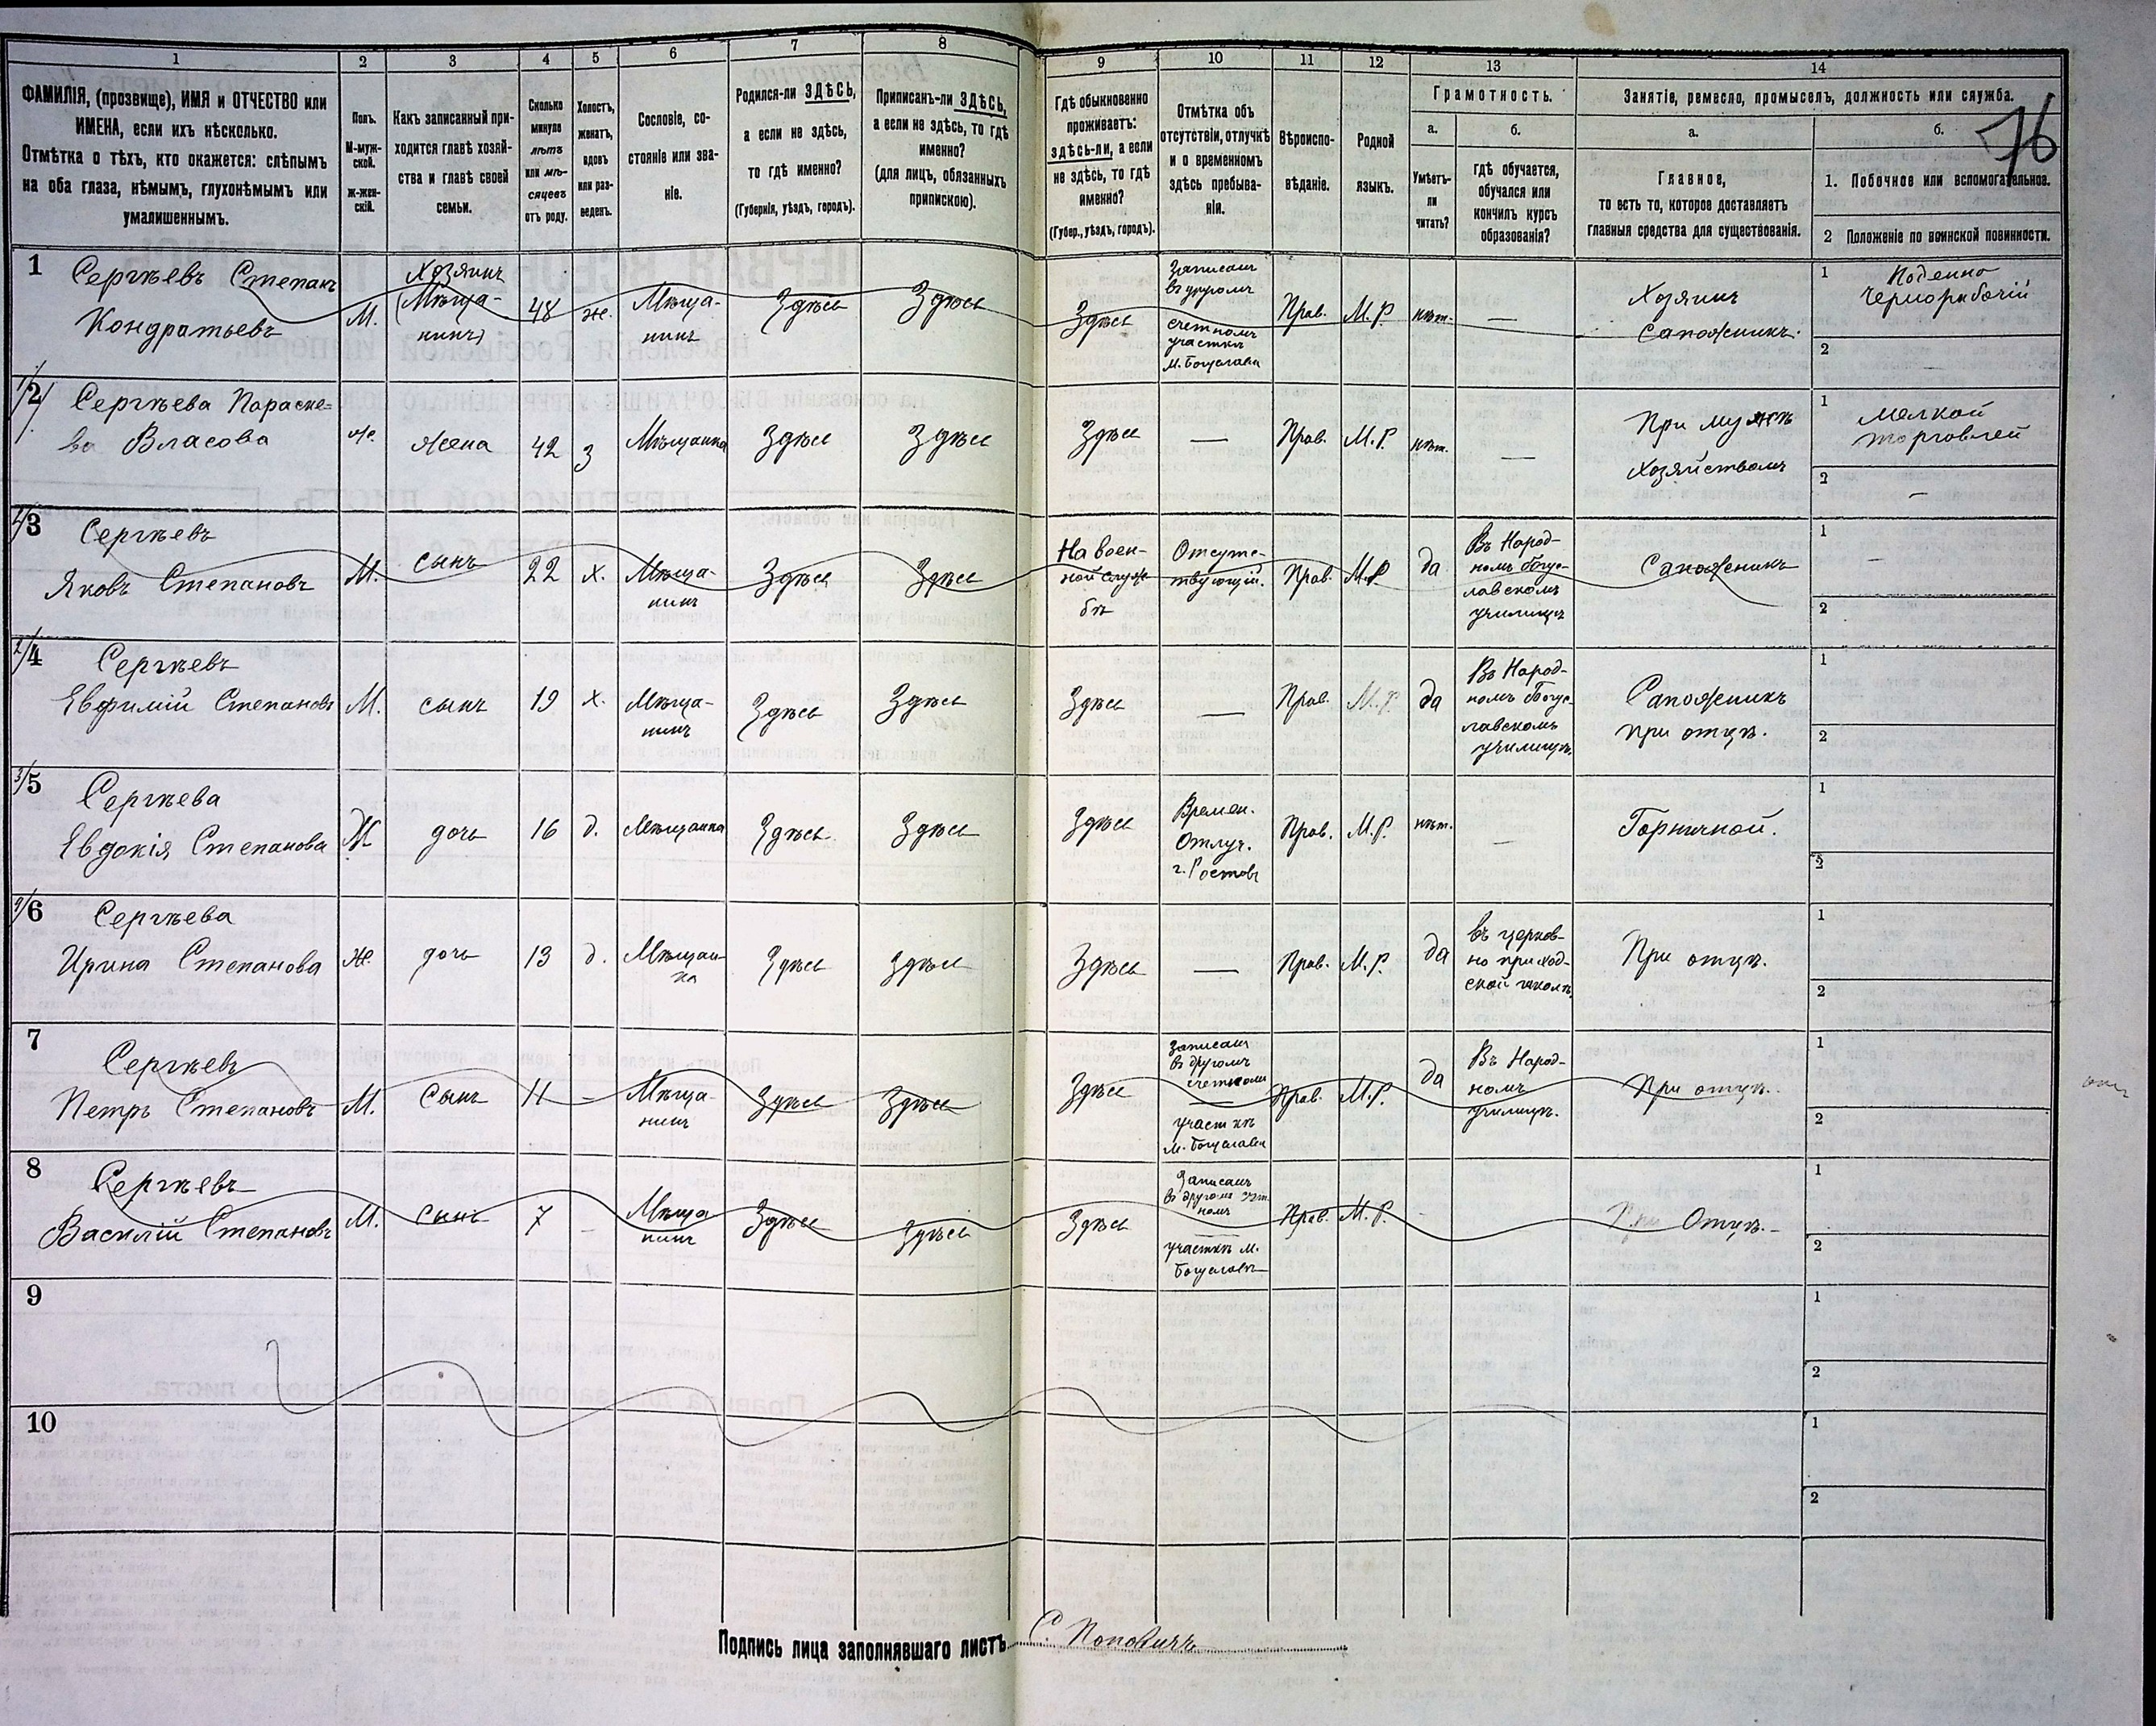 76
1
2
3
4
5
6
7
8
9
10
11
12
13
14
ФАМИЛІЯ, (прозвище), ИМЯ и ОТЧЕСТВО или
ИМЕНА, если ихъ нѣсколько.
Отмѣтка о тѣхъ, кто окажется: слѣпымъ
на оба глаза, нѣмымъ, глухонѣмымъ или
умалишеннымъ.
Полъ.
М-муж-
ской.
Ж-жен-
скій.
Какъ записанный при-
ходится главѣ хозяй-
ства и главѣ своей
семьи.
Сколько
минуло
лѣтъ
или мѣ-
сяцевъ
отъ роду.
Холостъ,
женатъ,
вдовъ
или раз-
веденъ.
Сословіе, со-
стояніе или зва-
ніе.
Родился-ли ЗДѢСЬ,
а если не здѣсь,
то гдѣ именно?
(Губернія, уѣздъ, городъ).
Приписанъ-ли ЗДѢСЬ,
а если не здѣсь, то гдѣ
именно?
(для лицъ, обязанныхъ
припискою).
Гдѣ обыкновенно
проживаетъ:
здѣсь-ли, а если
не здѣсь, то гдѣ
именно?
(Губер., уѣздъ, городъ).
Отмѣтка объ
отсутствіи, отлучкѣ
и о временномъ
здѣсь пребыва-
ніи.
Вѣроиспо-
вѣданіе.
Родной
языкъ.
Грамотность.
а.
Умѣетъ-
ли
читать?
б.
Гдѣ обучается,
обучался или
кончилъ курсъ
образованія?
Занятіе, ремесло, промыселъ, должность или служба.
а.
Главное,
то есть то, которое доставляетъ
главныя средства для существованія.
б.
1. Побочное или вспомогательное.
2 Положеніе по воинской повинности.
1
Сергѣевъ Степанъ
Кондратьевъ
М.
Хозяинъ
(Мѣща-
нинъ)
48
ж.
Мѣща-
нинъ
Здѣсь
Здѣсь
Здѣсь
Записанъ
въ другомъ
счетномъ
участкѣ
М. Богуслава
Прав.
М.Р.
нѣт.
—
Хозяинъ
Сапожникъ.
1
Поденно
Чернорабочій
2
1/2
Сергѣева Параске=
ва Власова
Ж.
жена
42
З
Мѣщанка
Здѣсь
Здѣсь
Здѣсь
—
Прав.
М.Р.
нѣт.
—
При мужѣ
хозяйствомъ
1
Мелкой
торговлей
2
—
3
Сергѣевъ
Яковъ Степановъ
М.
сынъ
22
х.
Мѣща-
нинъ
Здѣсь
Здѣсь
На воен-
ной служ-
бѣ
Отсутс-
твующій.
Прав.
М.Р.
да
Въ Народ-
номъ Богус-
лавскомъ
училищѣ
Сапожникъ
1
—
2
4
Сергѣевъ
Евфимій Степановъ
М.
сынъ
19
х.
Мѣща-
нинъ
Здѣсь
Здѣсь
Здѣсь
—
Прав.
М.Р.
да
Въ Народ-
номъ Богус-
лавскомъ
училищѣ.
Сапожникъ
при отцѣ.
1
2
3/5
Сергѣева
Евдокія Степанова
Ж
дочь
16
д.
Мѣщанка
Здѣсь
Здѣсь
Здѣсь
Времен.
Отлуч.
г. Ростовъ
Прав.
М.Р.
нѣт.
—
Горничной.
1
2
6
Сергѣева
Ирина Степанова
Ж.
дочь
13
д.
Мѣщан-
ка
Здѣсь
Здѣсь
Здѣсь
—
Прав.
М.Р.
да
въ церков-
но приход-
ской школѣ.
При отцѣ.
1
2
7
Сергѣевъ
Петръ Степановъ
М.
Сынъ
11
–
Мѣща-
нинъ
Здѣсь
Здѣсь
Здѣсь
Записанъ
въ другомъ
счетномъ
участкѣ
М. Богуслава
Прав.
М.Р.
да
Въ Народ-
номъ
училищѣ.
При отцѣ.
1
2
8
Сергѣевъ
Василій Степановъ
М.
Сынъ
7
–
Мѣща
нинъ
Здѣсь
Здѣсь
Здѣсь
Записанъ
въ другомъ счет
номъ
участкѣ М.
Богуславъ
Прав.
М.Р.
При Отцѣ.
1
2
9
1
2
10
1
2
Подпись лица заполнявшаго листъ С. Поповичъ